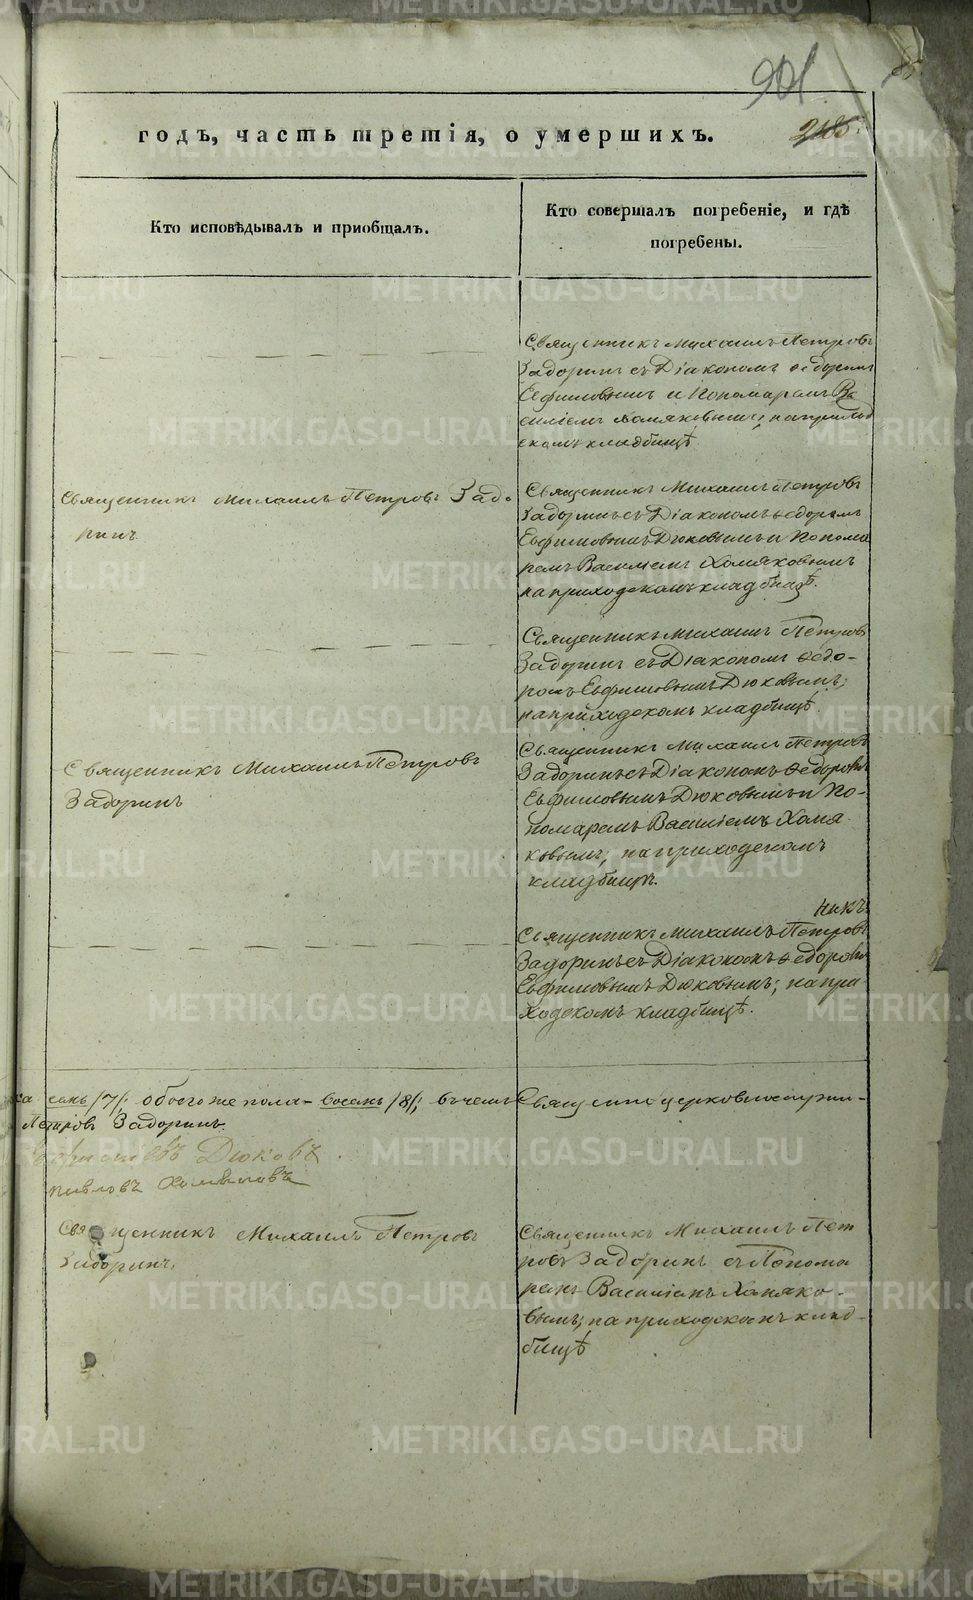 901
годъ, часть третія, о умершихъ.
Кто исповѣдывалъ и пріобщалъ.
Кто совершалъ погребеніе, и гдѣ
погребены.
Священникъ Михаилъ Петровъ
Задоринъ съ Діакономъ Ѳедоромъ
Евфимовымъ и Пономаремъ Ва
силіемъ Хомяковымъ; на приход
скомъ кладбищѣ
Священникъ Михаилъ Петровъ Задо-
ринъ
Священникъ Михаилъ Петровъ
Задоринъ съ Діакономъ Ѳедоромъ
Евфимовымъ Дюковымъ и Понома
ремъ Василіемъ Хомяковымъ
на приходскомъ кладбищѣ.
Священникъ Михаилъ Петровъ
Задоринъ съ Діакономъ Ѳедо-
ромъ Евфимовымъ Дюковымъ;
на приходскомъ кладбищѣ.
Священникъ Михаилъ Петровъ
Задоринъ
Священникъ Михаилъ Петровъ
Задоринъ съ Діакономъ Ѳедоровъ
Евфимовымъ Дюковымъ и По-
номаремъ Василіемъ Хомя
ковымъ, на приходскомъ
кладбищѣ.
никъ
Священникъ Михаилъ Петровъ
Задоринъ съ Діакономъ Ѳедоровъ
Евфимовымъ Дюковымъ; на при
ходскомъ кладбищѣ.
семь /7/; обоего же пола - восемь /8/; въ чемъ Священно церковнослужи-
Петровъ Задоринъ
Евфимовъ Дюковъ.
Павловъ Хомяковъ
Священникъ Михаилъ Петровъ
Задоринъ.
Священникъ Михаилъ Пет
ровъ Задоринъ съ Понома
ремъ Василіемъ Хомяко-
вымъ; на приходскомъ клад-
бищѣ
METRIKI.GASO-URAL.RU